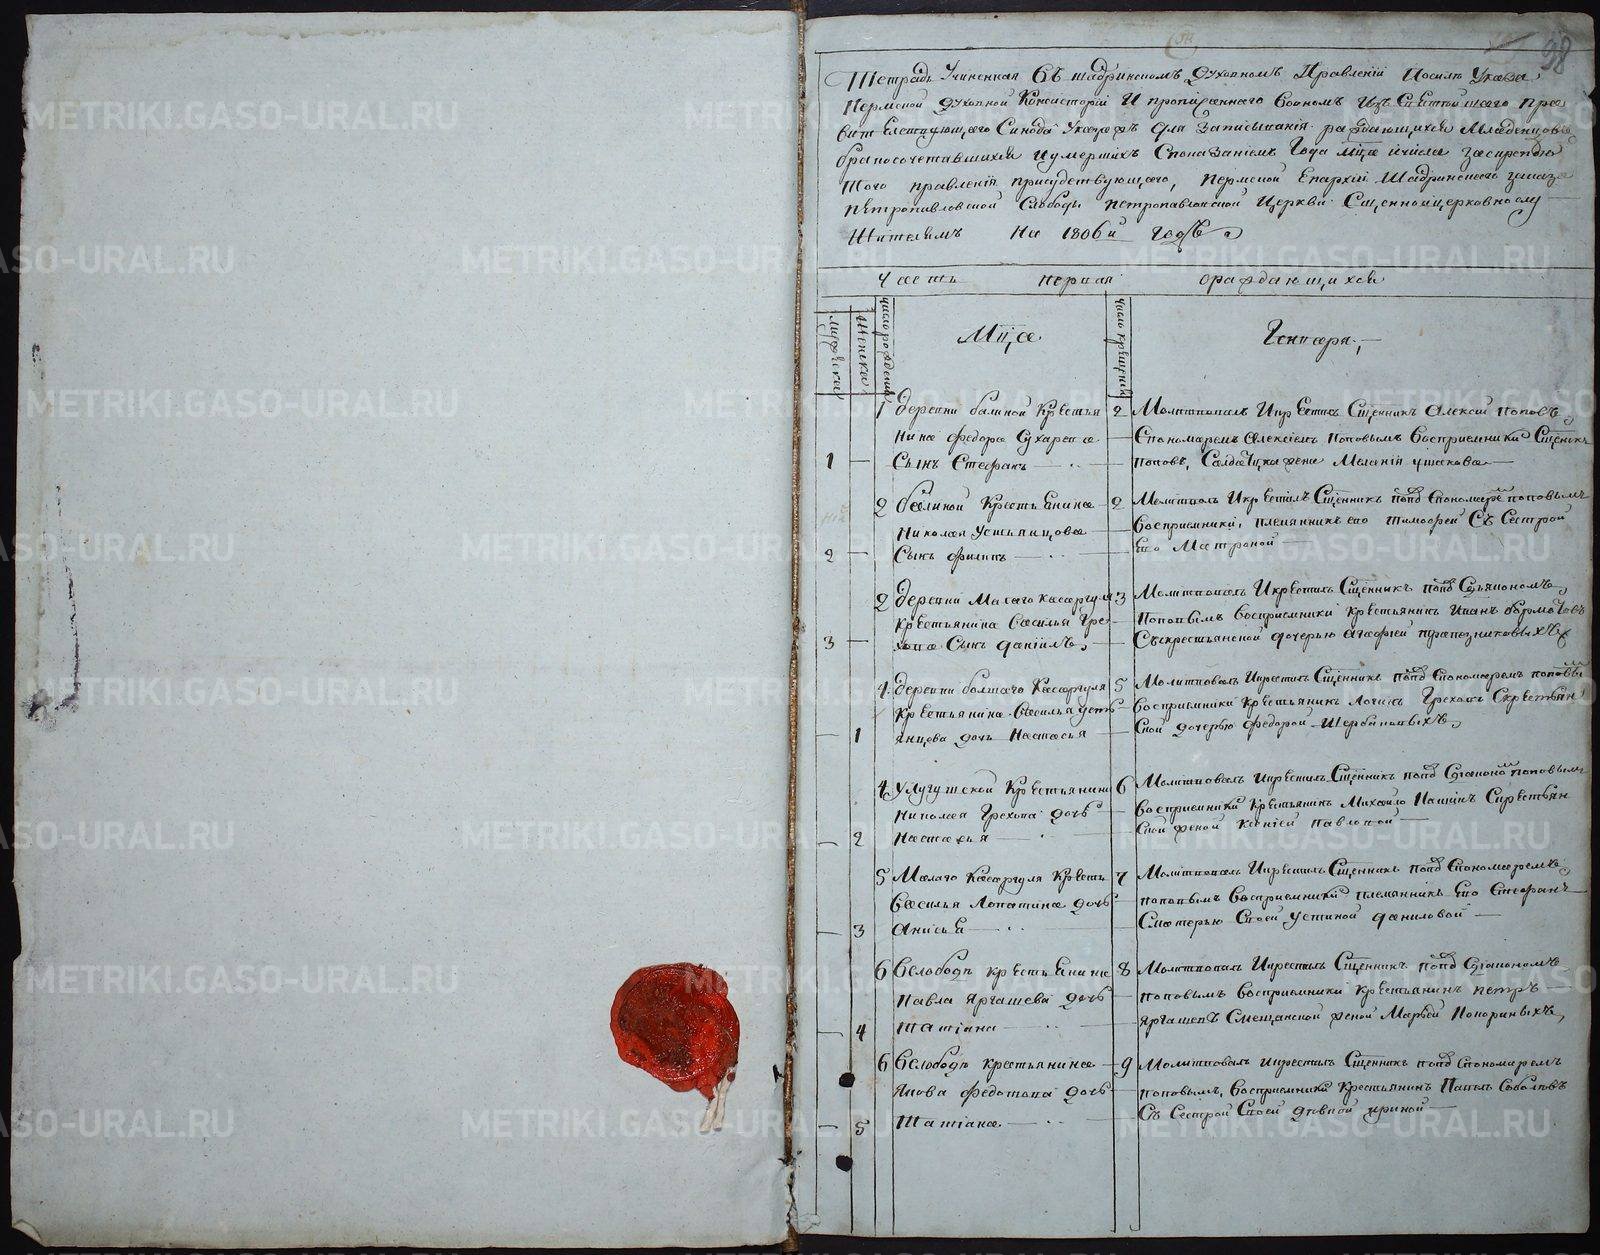 98
Тетрадь Учиненная Въ шадринскомъ Духовномъ Правленіи Посилѣ Указа
Пермской духовной Консисторіи И прописаннаго Вономъ Изъ Святейшаго Пра
вительствующаго Синода Указа Для Записыванія раждающихся Младенцовъ
бракосочетавшихся иумершихъ Споказаніемъ Года мца ичисла Заскрепою
Того правленія присудствующаго, Пермской Епархіи Шадринского уезда
Петропавловской Слободы петропавловской Церкви Сщенноицерковнослу
жителямъ На 1806й годъ
Часть первая ораждающихся
мужеска
женска
число рождения
Мца
число крещения
Генваря
1 деревни балиной Крестья
нина федора Сухарева
1 Сынъ Стефанъ
2 Молитвовалъ Икрестилъ Сщенникъ Алексей поповъ
Спономаремъ Алексіемъ поповымъ Восприемники Сщенникъ
поповъ, Салдатская жена Меланія ушакова
2 балиной Крестьянина
Николая Устьянцова
2 Сынъ филипъ
2 Молитвовалъ Икрестилъ Сщенникъ попов Спономаремъ поповымъ
Восприемники, племянникъ его тимофей Съ Сестрой
Его Матроной
2 деревни Малаго касаргуля
крестьянина Василья Гре
3 хова Сынъ даніилъ
3 Молитвовалъ Икрестилъ Сщенникъ попов Сдьякономъ
Поповымъ Восприемники крестьянинъ Иванъ
Скрестьянской дочерью агафией
4 деревни болшаго Касаргуля
Крестьянина Василья усть
1 янцова дочь Настасья
5 Молитвовалъ Икрестилъ Сщенникъ попов Спономаремъ поповым
восприемники Крестьянинъ Логинъ Греховъ Скрестьян
ской дочерью федорой Щербиновыхъ
4 Улугушской Крестьянина
Николая Грехова дочь
2 Настасья
6 Молитвовалъ Икрестилъ Сщенникъ попов Сдіакономъ поповымъ
восприемники Крестьянинъ Михайло Пашинъ Скрестьян
ской женой Ксенией Павловой
5 Малаго Касаргуля Кресть
Василья Лопатина дочь
3 Анисья
7 Молитвовалъ Икрестилъ Сщенникъ попов Спономаремъ
поповымъ Восприемники племянникъ Его Стефанъ
Сматерью Своей Устиной даниловой
6 Вслободы крестьянина
Павла Яргашева дочь
4 Татіана
8 Молитвовалъ Икрестилъ Сщенникъ попов Сдіакономъ
поповымъ Восприемники Крестьянинъ петръ
Яргашевъ Смещанской женой Марьей Пономаревыхъ
6 Вслободы крестьянина
Якова Федотова дочь
5 Татіана
9 Молитвовалъ икрестилъ Сщенникъ попов Спономаремъ
поповымъ, Восприемники Крестьянинъ Павелъ Соболевъ
Съ Сестрой Своей девкой ириной